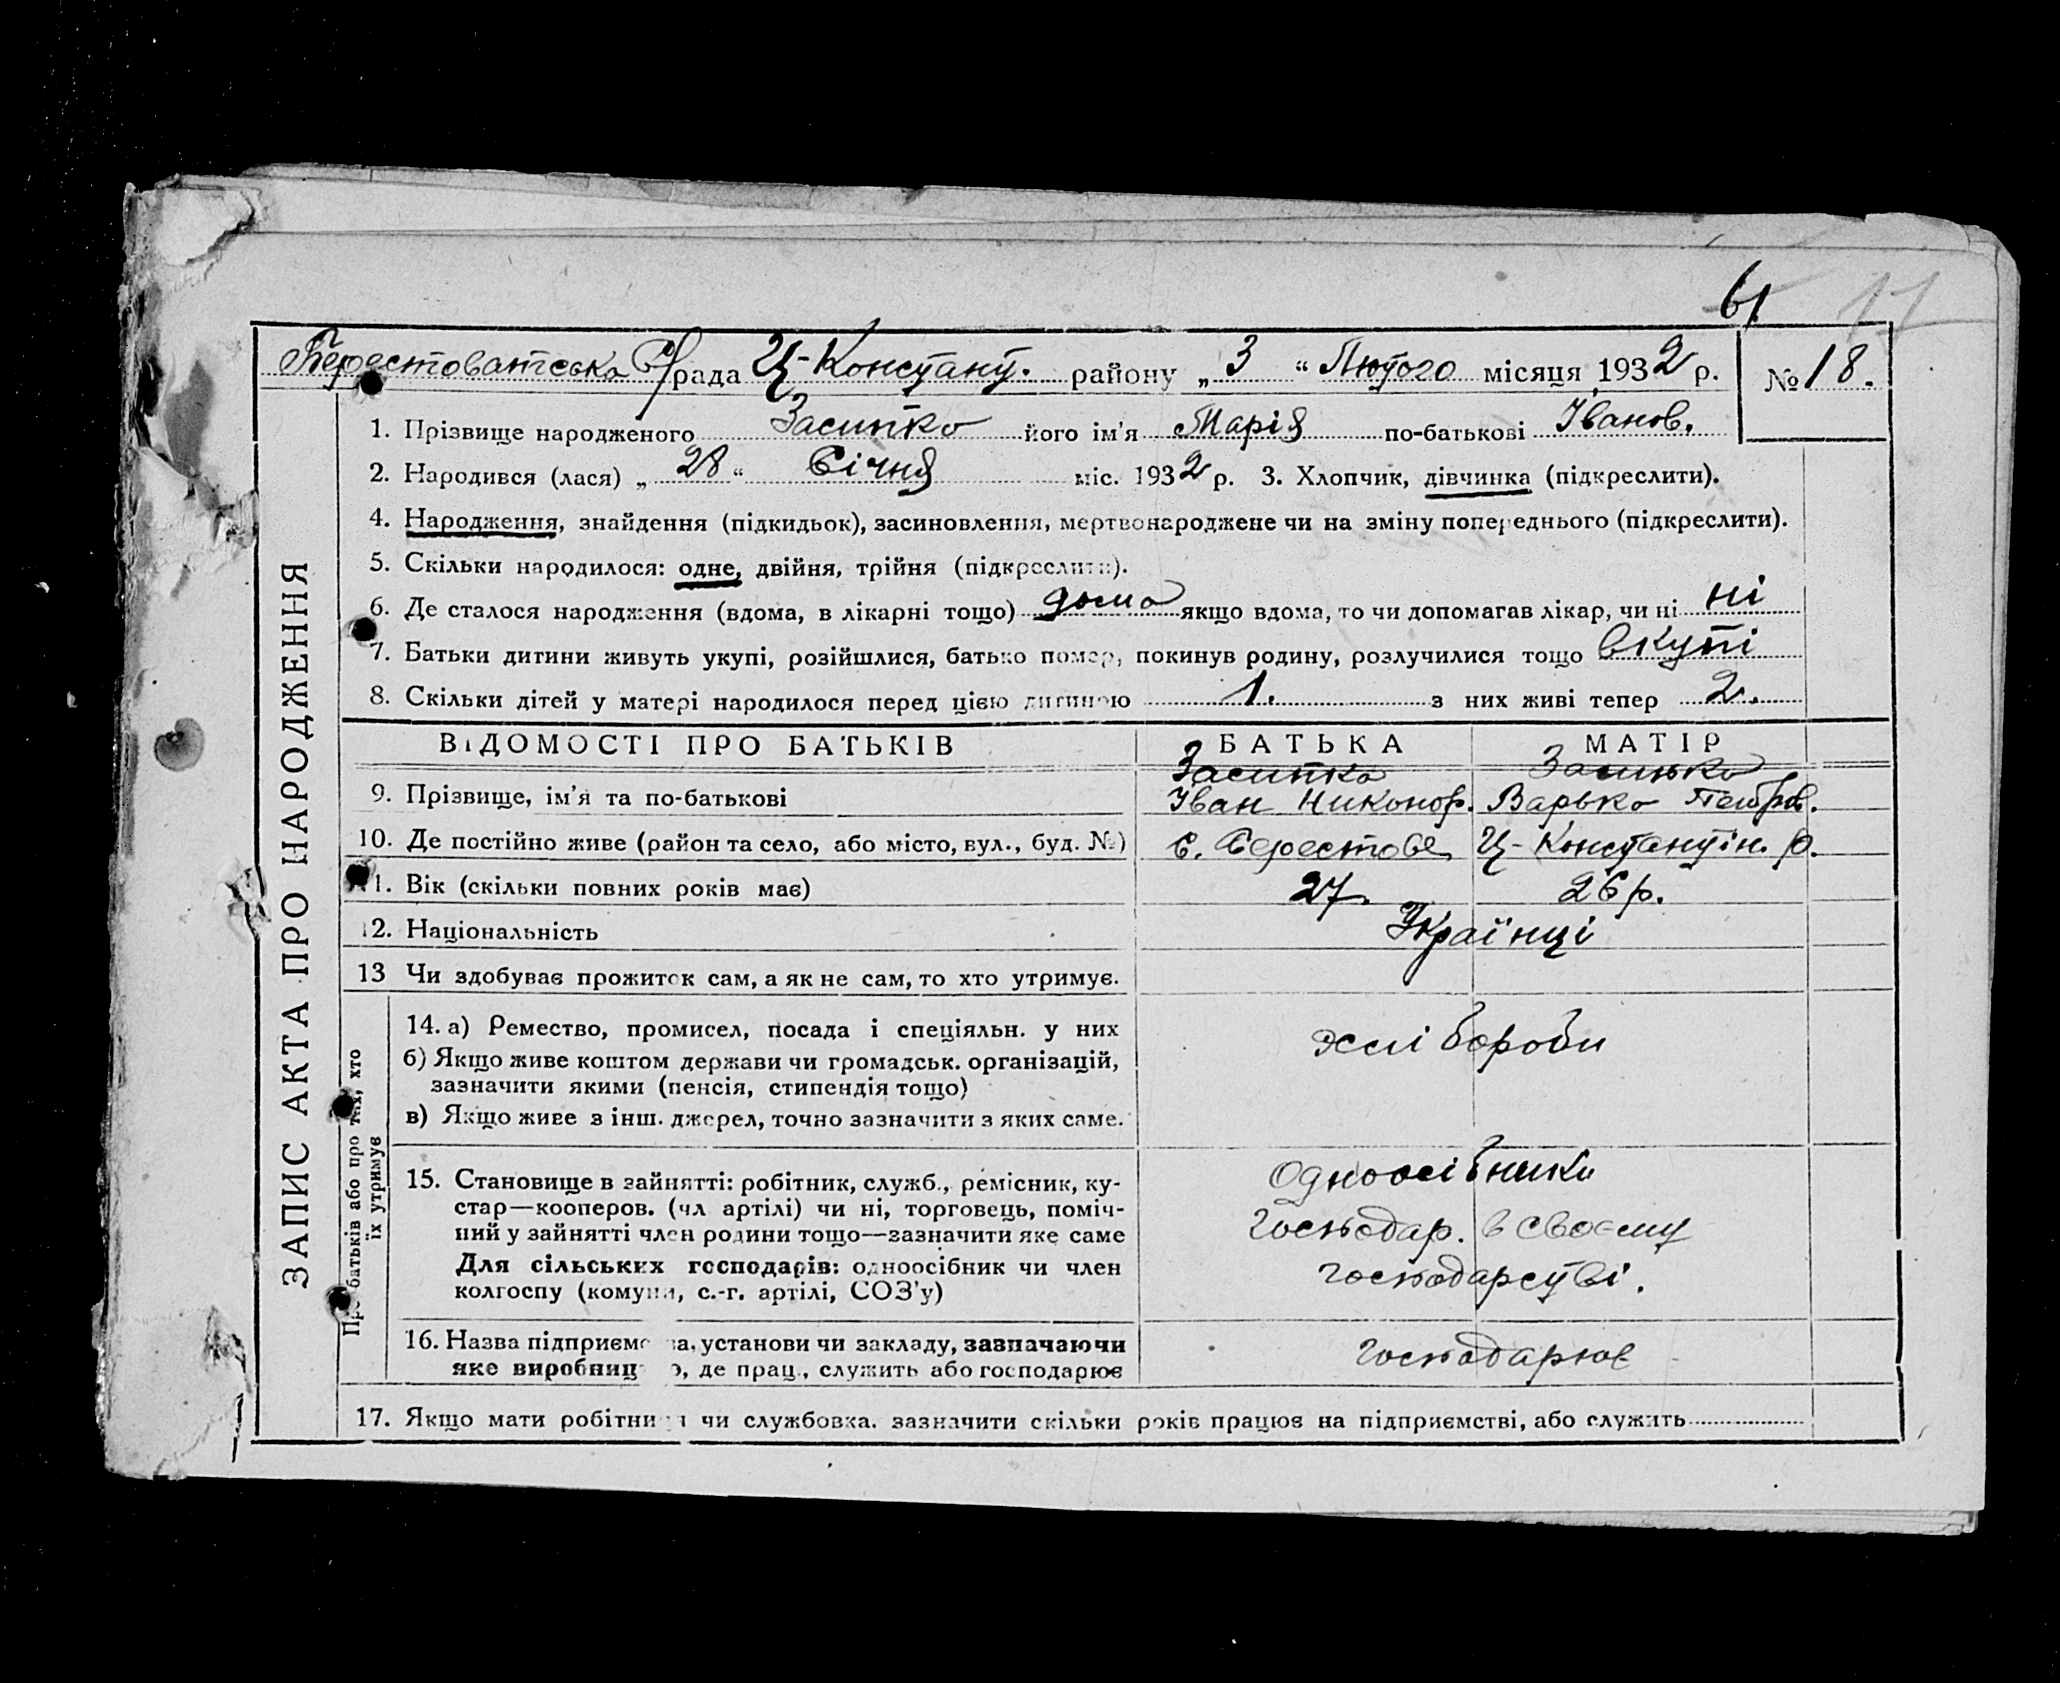 61 11
Берестоватська С/рада Ц-Констант. району „ 3 “ Лютого місяця 1932 р. № 18.
1. Прізвище народженого Засипко його ім'я Марія по-батькові Іванов.
2. Народився (лася) „ 28 “ Січня міс. 1932 р. 3. Хлопчик, дівчинка (підкреслити).
4. Народження, знайдення (підкидьок), засиновлення, мертвонароджене чи на зміну попереднього (підкреслити).
5. Скільки народилося: одне, двійня, трійня (підкреслити).
6. Де сталося народження (вдома, в лікарні тощо) дома якщо вдома, то чи допомагав лікар, чи ні ні
7. Батьки дитини живуть укупі, розійшлися, батько помер, покинув родину, розлучилися тощо вкупі
8. Скільки дітей у матері народилося перед цією дитиною 1. з них живі тепер 2.
ЗАПИС АКТА ПРО НАРОДЖЕННЯ
ВІДОМОСТІ ПРО БАТЬКІВ БАТЬКА МАТІР
Засипко Засипко
9. Прізвище, ім'я та по-батькові Іван Никонор. Варько Петров.
10. Де постійно живе (район та село, або місто, вул., буд. №) С. Берестове Ц-Константін. р.
11. Вік (скільки повних років має) 27. 26 р.
12. Національність Українці
13 Чи здобуває прожиток сам, а як не сам, то хто утримує.
Про батьків або про тих, хто
їх утримує
14. а) Ремество, промисел, посада і спеціяльн. у них
хлібороби
б) Якщо живе коштом держави чи громадськ. організацій,
зазначити якими (пенсія, стипендія тощо)
в) Якщо живе з інш. джерел, точно зазначити з яких саме.
15. Становище в зайнятті: робітник, служб., ремісник, ку- Одноосібники
стар—кооперов. (чл артілі) чи ні, торговець, поміч-
ний у зайнятті член родини тощо—зазначити яке саме Господар. в своєму
Для сільських господарів: одноосібник чи член господарстві.
колгоспу (комуни, с.-г. артілі, СОЗ'у)
16. Назва підприємства, установи чи закладу, зазначаючи господарює
яке виробництво, де прац., служить або господарює
17. Якщо мати робітниця чи службовка. зазначити скільки років працює на підприємстві, або служить